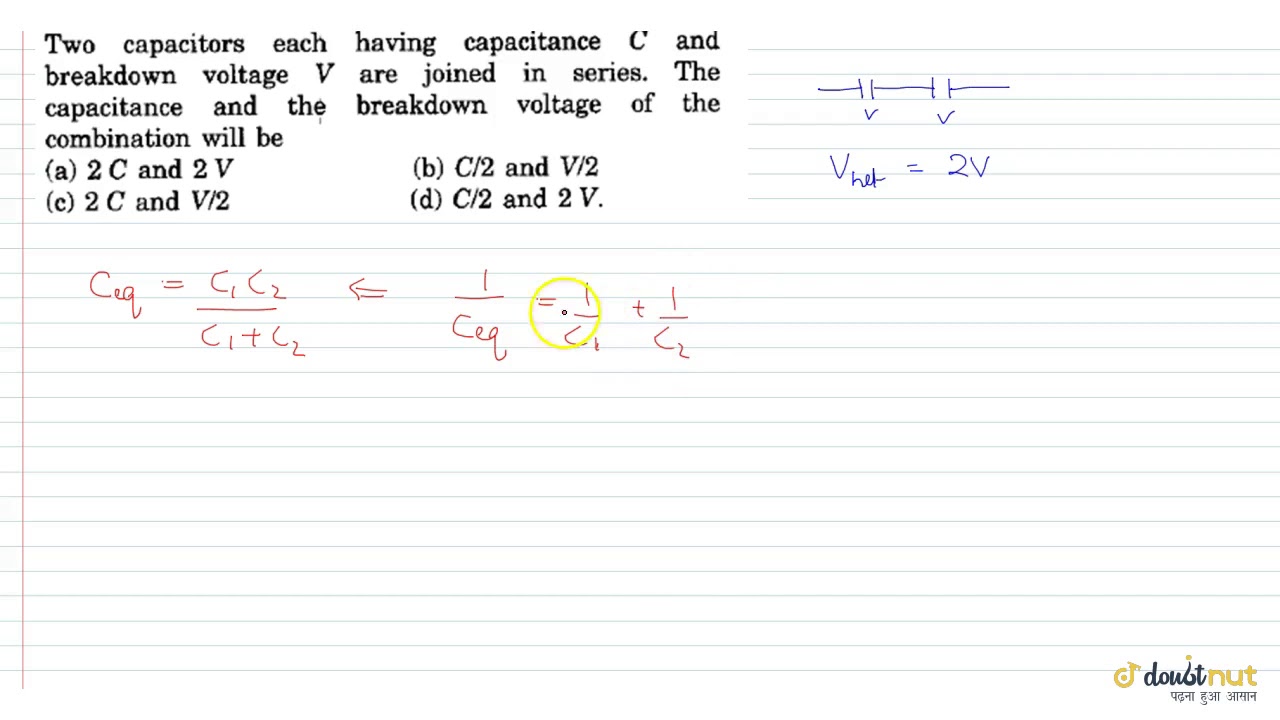 Two capacitors each having capacitance C and
breakdown voltage V are joined in series. The
capacitance and the breakdown voltage of the
combination will be
(a) 2 C and 2 V (b) C/2 and V/2
(c) 2 C and V/2 (d) C/2 and 2 V.
V V
V_net = 2V
C_eq = C_1 C_2 / C_1 + C_2 ⇐ 1 / C_eq = 1 / C_1 + 1 / C_2
doubtnut
पढ़ना हुआ आसान